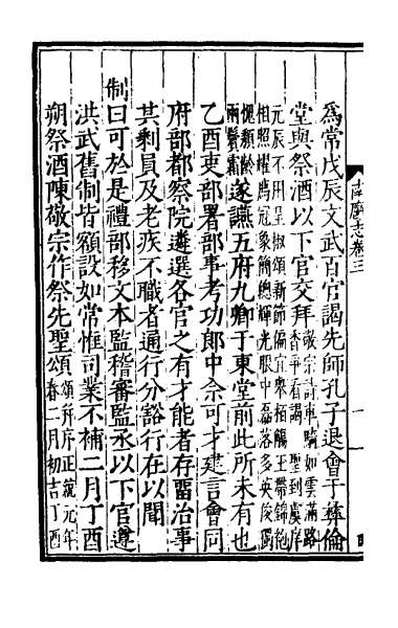 為常戊辰文武百官謁先師孔子退會于彝倫
堂與祭酒以下官交拜敬宗詩車騎如雲滿路香爭看謁聖到虞庠
元辰不用呈椒頌新節偏宜衆栢觴玉帶錦袍
相照耀鳬冠象簡總輝光眼中磊落多英俊獨
愧頹齡兩鬢霜遂讌五府九卿于東堂前此所未有也
乙酉吏部署部事考功郎中佘可才建言會同
府部都察院遴選各官之有才能者存留治事
其剩員及老疾不職者通行分豁行在以聞
制曰可於是禮部移文本監稽審監丞以下官遵
洪武舊制皆額設如常惟司業不補二月丁酉
朔祭酒陳敬宗作祭先聖頌頌并序正統元年春二月初吉丁酉
南廱志卷三